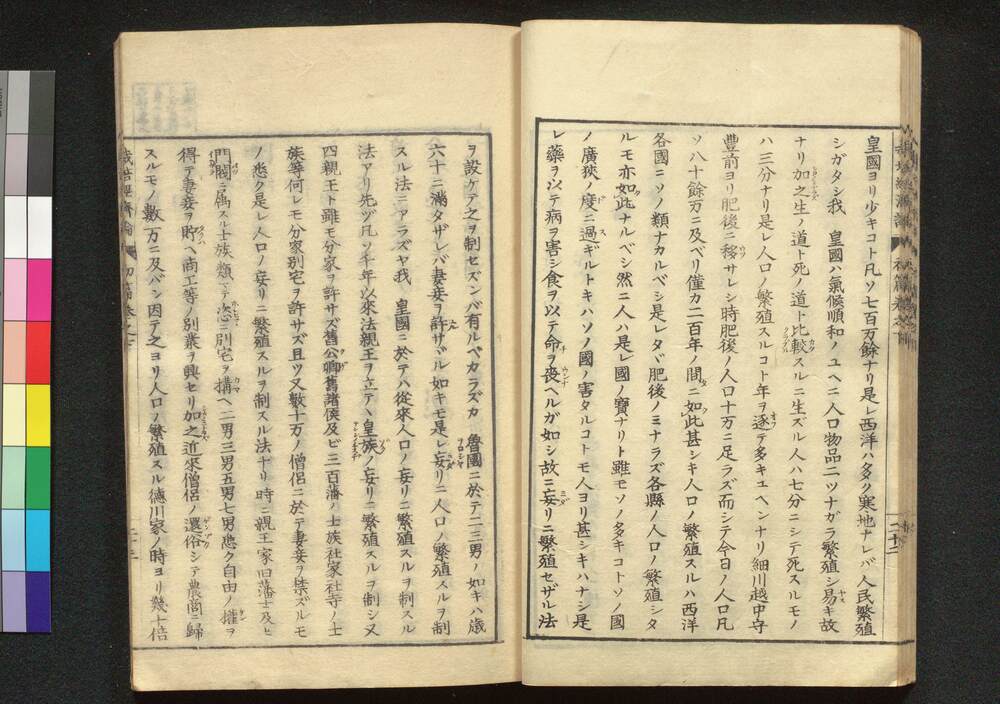 皇國ヨリ少キコト凡ソ七百万餘ナリ是レ西洋ハ多ク寒地ナレバ人民繁殖
シガタシ我　皇國ハ氣候順和ノユヘニ人口物品二ツナガラ繁殖シ易キ故
ナリ加之生ノ道ト死ノ道ト比較スルニ生ズル人ハ七分ニシテ死スルモノ
ハ三分ナリ是レ人口ノ繁殖スルコト年ヲ逐テ多キユヘンナリ細川越中守
豊前ヨリ肥後ニ移サレシ時肥後ノ人口十万ニ足ラズ而シテ今日ノ人口凡
ソ八十餘万ニ及ベリ僅カ二百年ノ間ニ如此甚シキ人口ノ繁殖スルハ西洋
各國ニソノ類ナカルベシ是レタヾ肥後ノミナラズ各縣ノ人口ノ繁殖シタ
ルモ亦如此ナルベシ然ニ人ハ是レ國ノ寶ナリト雖モソノ多キコトソノ國
ノ廣狹ノ度ニ過ギルトキハソノ國ノ害タルコトモ人ヨリ甚シキハナシ是
レ藥ヲ以テ病ヲ害シ食ヲ以テ命ヲ喪ヘルガ如シ故ニ妄リニ繁殖セザル法
二十二
ヲ設ケテ之ヲ制セズンバ有ルベカラズカ　魯國ニ於テ二三男ノ如キハ歳
六十ニ滿タザレバ妻妾ヲ許サヾル如キモ是レ妄リニ人口ノ繁殖スルヲ制
スル法ニアラズヤ我　皇國ニ於テハ從來人口ノ妄リニ繁殖スルヲ制スル
法アリ先ヅ凡ソ千年以來法親王ヲ立テヽ皇族ノ妄リニ繁殖スルヲ制シ又
四親王ト雖モ分家ヲ許サズ舊公卿舊諸侯及ビ三百藩ノ士族社家社寺ノ士
族等何レモ分家別宅ヲ許サズ且ツ又數十万ノ僧侶ニ於テ妻妾ヲ禁ズルモ
ノ悉ク是レ人口ノ妄リニ繁殖スルヲ制スル法ナリ時ニ親王家旧藩士及ヒ
門閥ニ属スル士族類マデ恣ニ別宅ヲ構ヘ二男三男五男七男悉ク自由ノ權ヲ
得テ妻妾ヲ貯ヘ商工等ノ別業ヲ興セリ加之近來僧侶ノ還俗シテ農商ニ歸
スルモノ數万ニ及バン因テ之ヨリ人口ノ繁殖スル德川家ノ時ヨリ幾十倍
栽培經濟論　初篇卷之